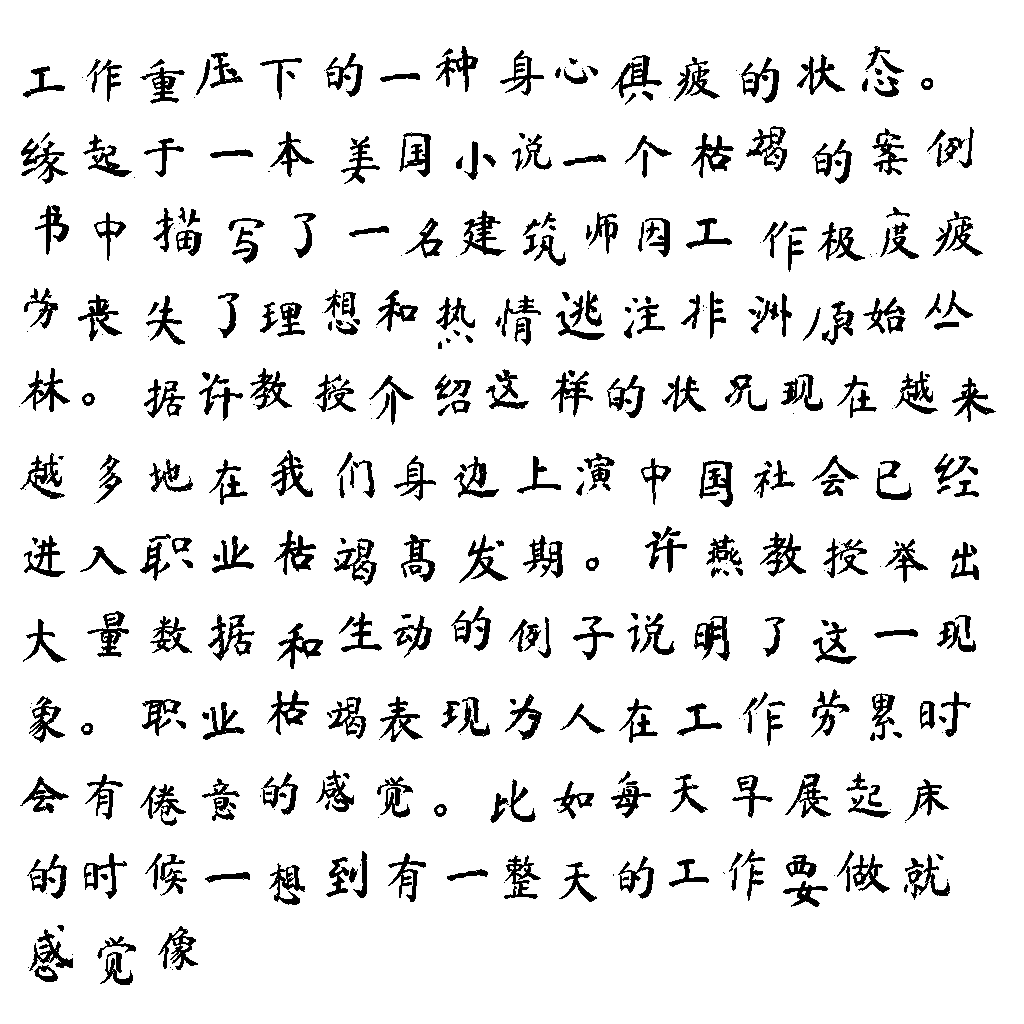 工作重压下的一种身心俱疲的状态。
缘起于一本美国小说一个枯竭的案例
书中描写了一名建筑师因工作极度疲
劳丧失了理想和热情逃注非洲原始丛
林。据许教授介绍这样的状况现在越来
越多地在我们身边上演中国社会已经
进入职业枯竭高发期。许燕教授举出
大量数据和生动的例子说明了这一现
象。职业枯竭表现为人在工作劳累时
会有倦意的感觉。比如每天早展起床
的时候一想到有一整天的工作要做就
感觉像